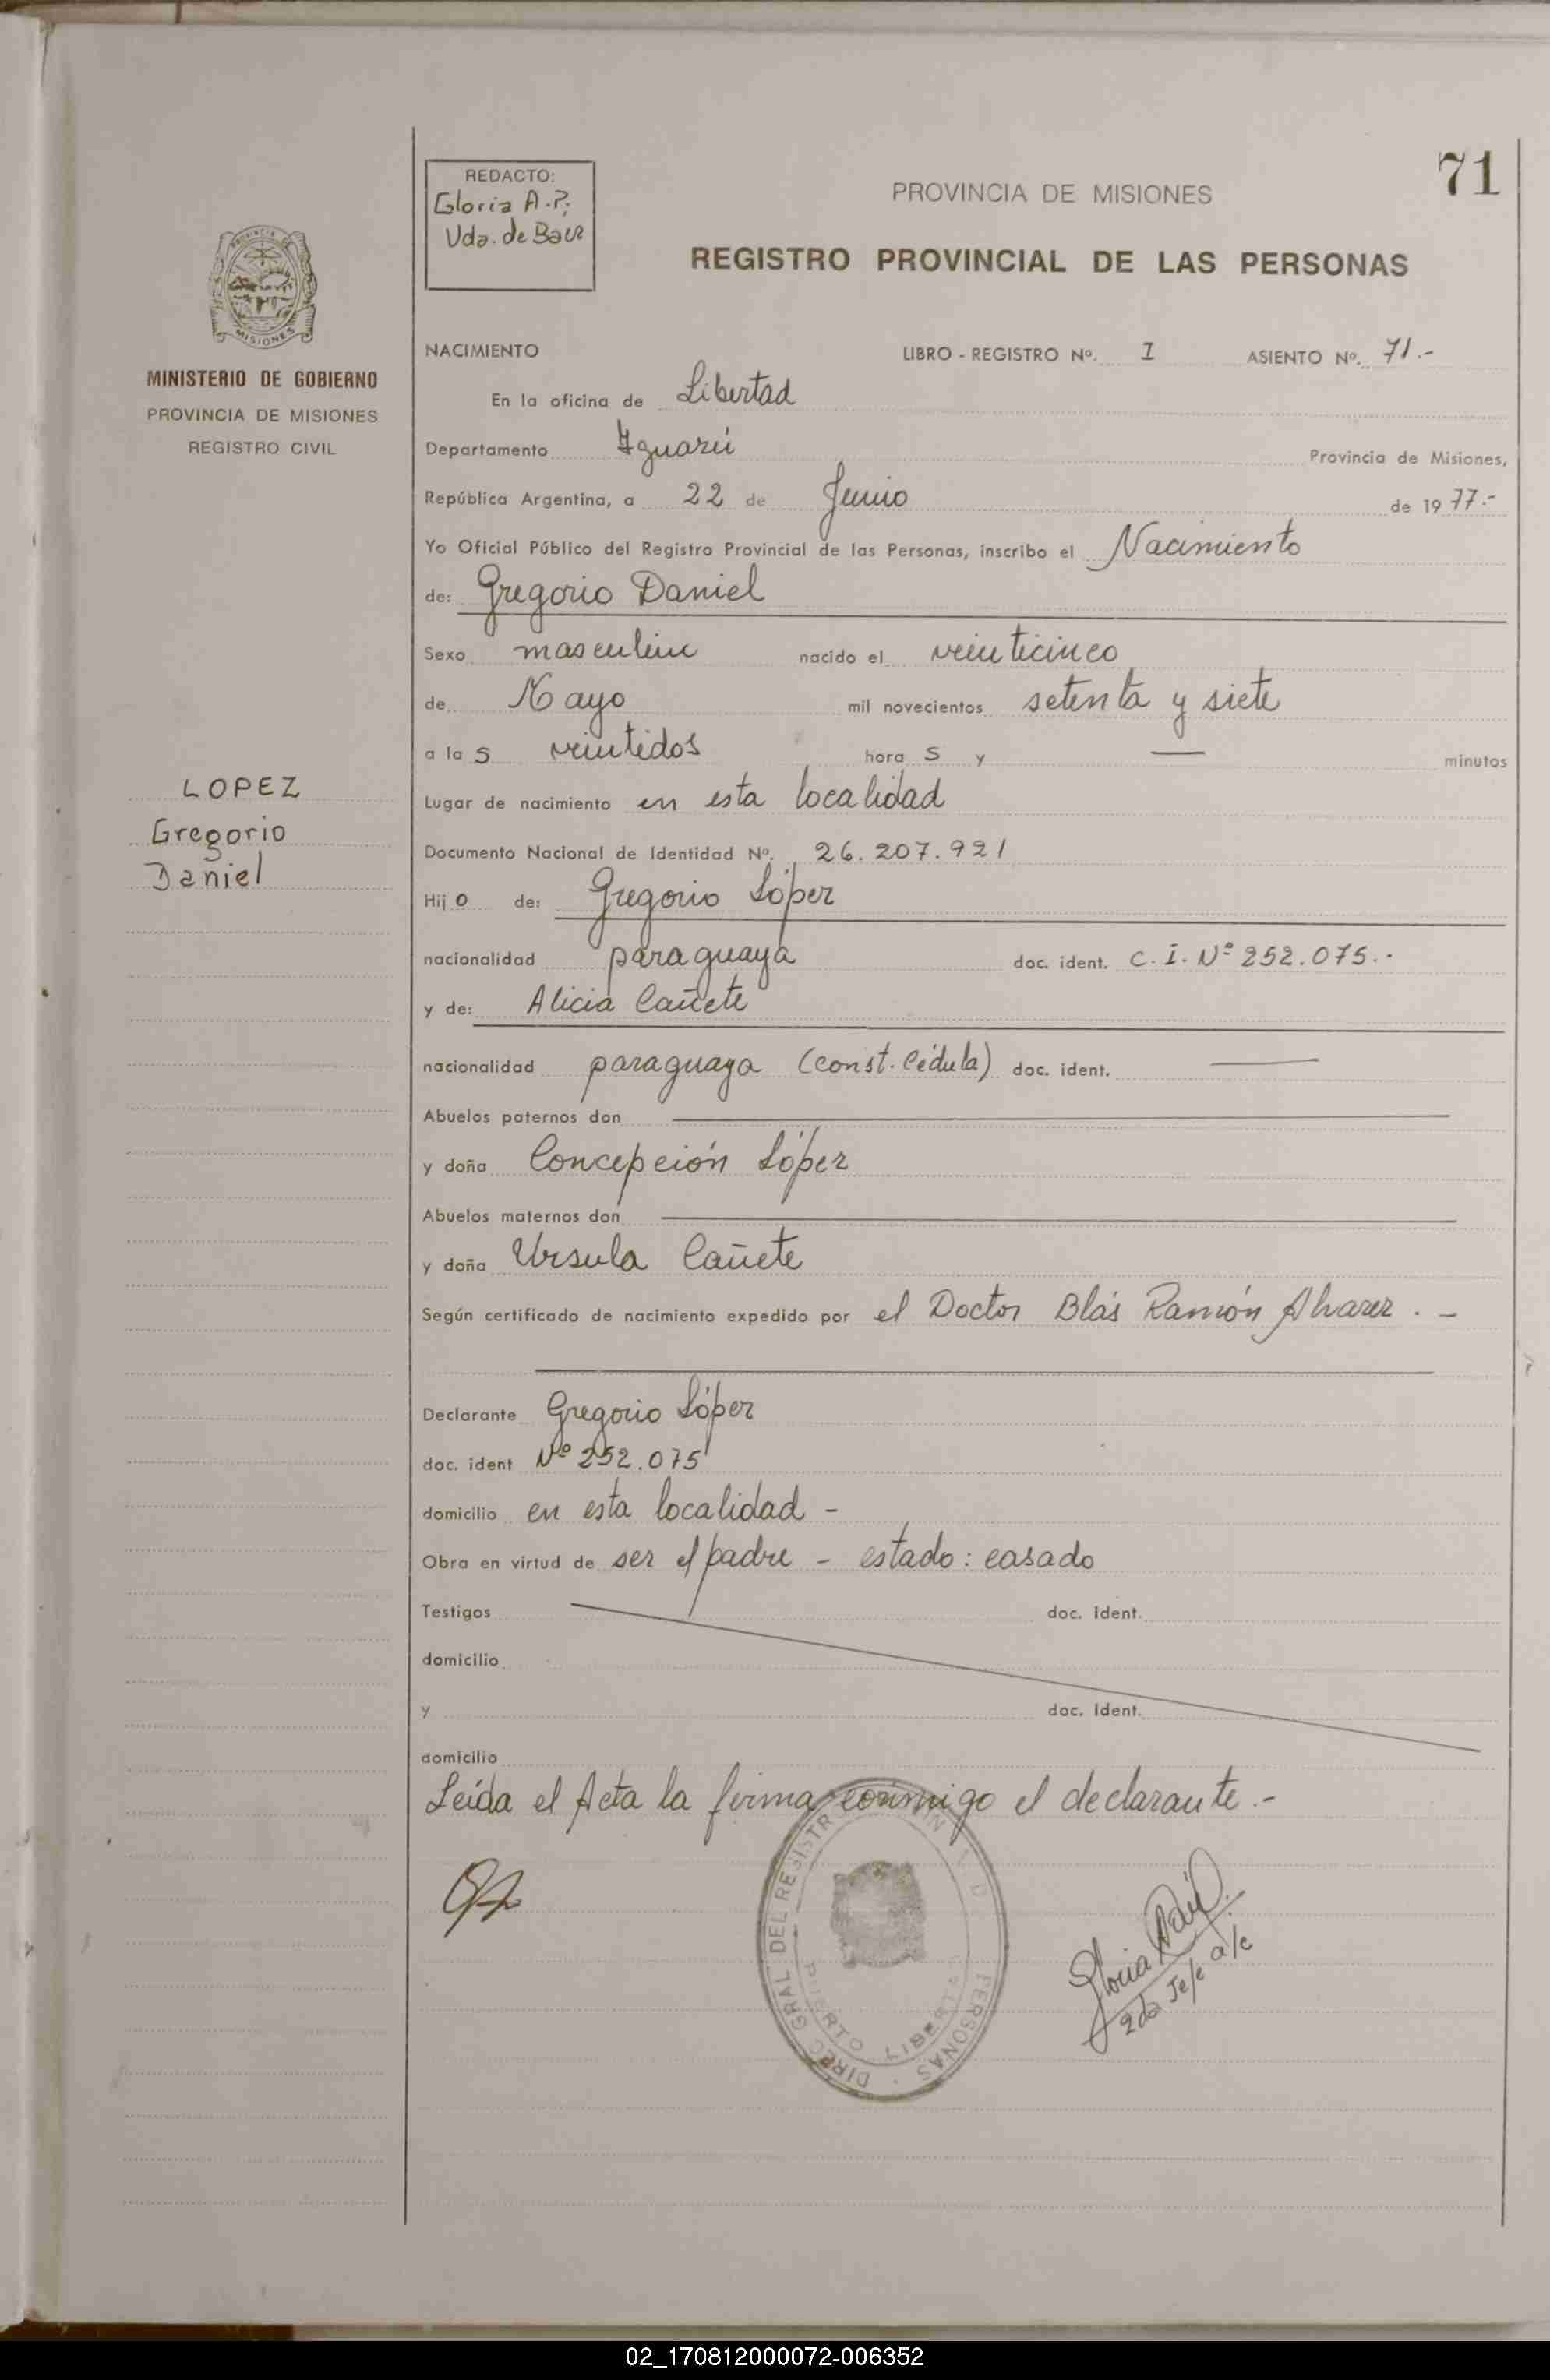 71
REDACTO:
Gloria A.P.
Vda. de Baez
PROVINCIA DE MISIONES
REGISTRO PROVINCIAL DE LAS PERSONAS
MISIONES
MINISTERIO DE GOBIERNO
PROVINCIA DE MISIONES
REGISTRO CIVIL
LOPEZ
Gregorio
Daniel
NACIMIENTO LIBRO - REGISTRO Nº. I ASIENTO Nº. 71.-
En la oficina de Libertad
Departamento Iguazú Provincia de Misiones,
República Argentina, a 22 de Junio de 19 77.-
Yo Oficial Público del Registro Provincial de las Personas, inscribo el Nacimiento
de: Gregorio Daniel
Sexo masculino nacido el veinticinco
de Mayo mil novecientos setenta y siete
a la s veintidos hora s y — minutos
Lugar de nacimiento en esta localidad
Documento Nacional de Identidad Nº. 26.207.921
Hij o de: Gregorio López
nacionalidad paraguaya doc. ident. C.I. Nº 252.075.-
y de: Alicia Cañete
nacionalidad paraguaya (const. Cédula) doc. ident. —
Abuelos paternos don —
y doña Concepción López
Abuelos maternos don —
y doña Ursula Cañete
Según certificado de nacimiento expedido por el Doctor Blás Ramón Alvarez . -
Declarante Gregorio López
doc. ident Nº 252.075
domicilio en esta localidad -
Obra en virtud de ser el padre - estado: casado
Testigos doc. ident.
domicilio
y doc. Ident.
domicilio
Leída el Acta la firma conmigo el declarante.-
DIREC GRAL DEL REGISTR PERSONAS
PUERTO LIBERTAD
Gloria
2da Jefe a/c
02_170812000072-006352